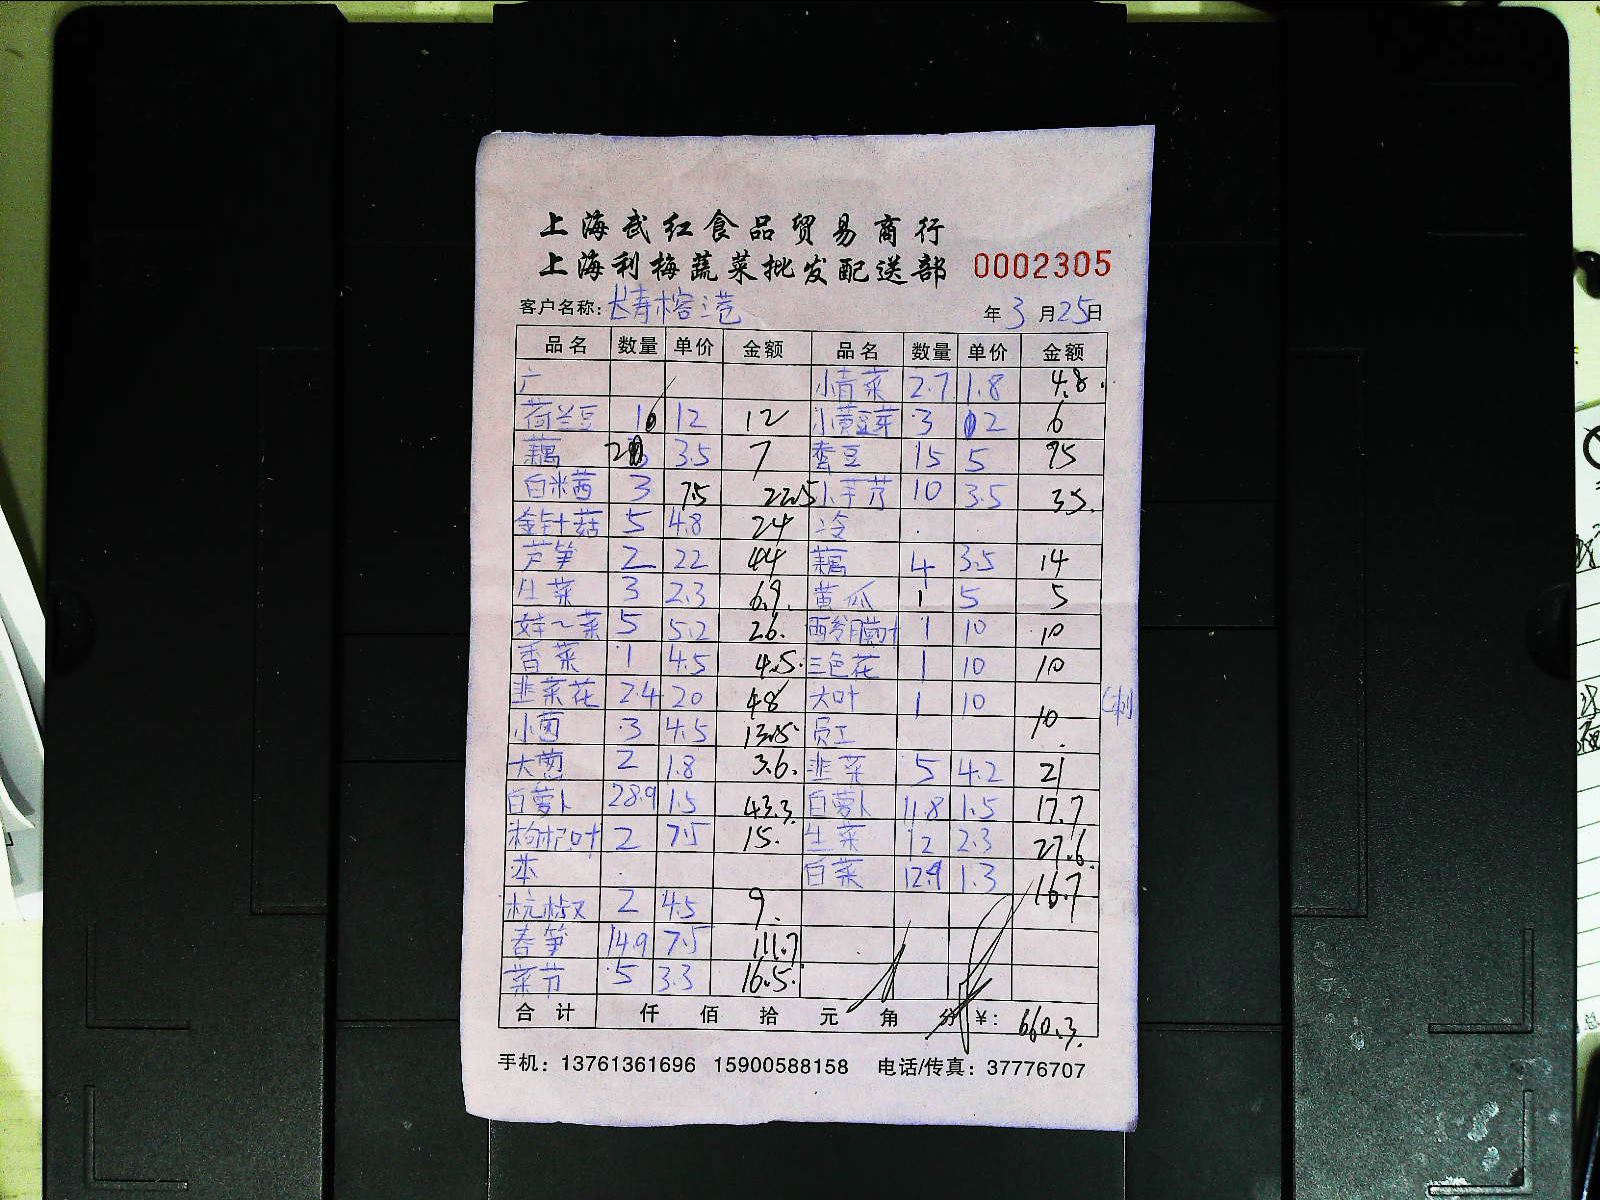 上海武红食品贸易商行
上海利梅蔬菜批发配送部 0002305
客户名称: 长寿榕港 年 3 月 25 日
品名 数量 单价 金额 品名 数量 单价 金额
广 小青菜 2.7 1.8 4.8
荷兰豆 1 12 12 小黄豆芽 3 2 6
藕 2 3.5 7 蚕豆 15 5 75
白米茜 3 7.5 22.5 小芋艿 10 3.5 35
金针菇 5 4.8 24 冷
芦笋 2 22 44 藕 4 3.5 14
生菜 3 2.3 6.9 黄瓜 1 5 5
娃~菜 5 5.2 26 西 1 10 10
香菜 1 4.5 4.5 三色花 1 10 10
韭菜花 2.4 20 48 大叶 1 10 10
小 3 4.5 13.5 员工
大葱 2 1.8 3.6 韭菜 5 4.2 21
白萝卜 28.9 1.5 43.3 白萝卜 11.8 1.5 17.7
枸杞叶 2 7.5 15 生菜 12 2.3 27.6
本 白菜 12.9 1.3 16.7
杭椒 2 4.5 9
春笋 14.9 7.5 111.7
菜节 5 3.3 16.5
合计 仟 佰 拾 元 角 分 ¥: 660.3
手机: 13761361696 15900588158 电话/传真: 37776707